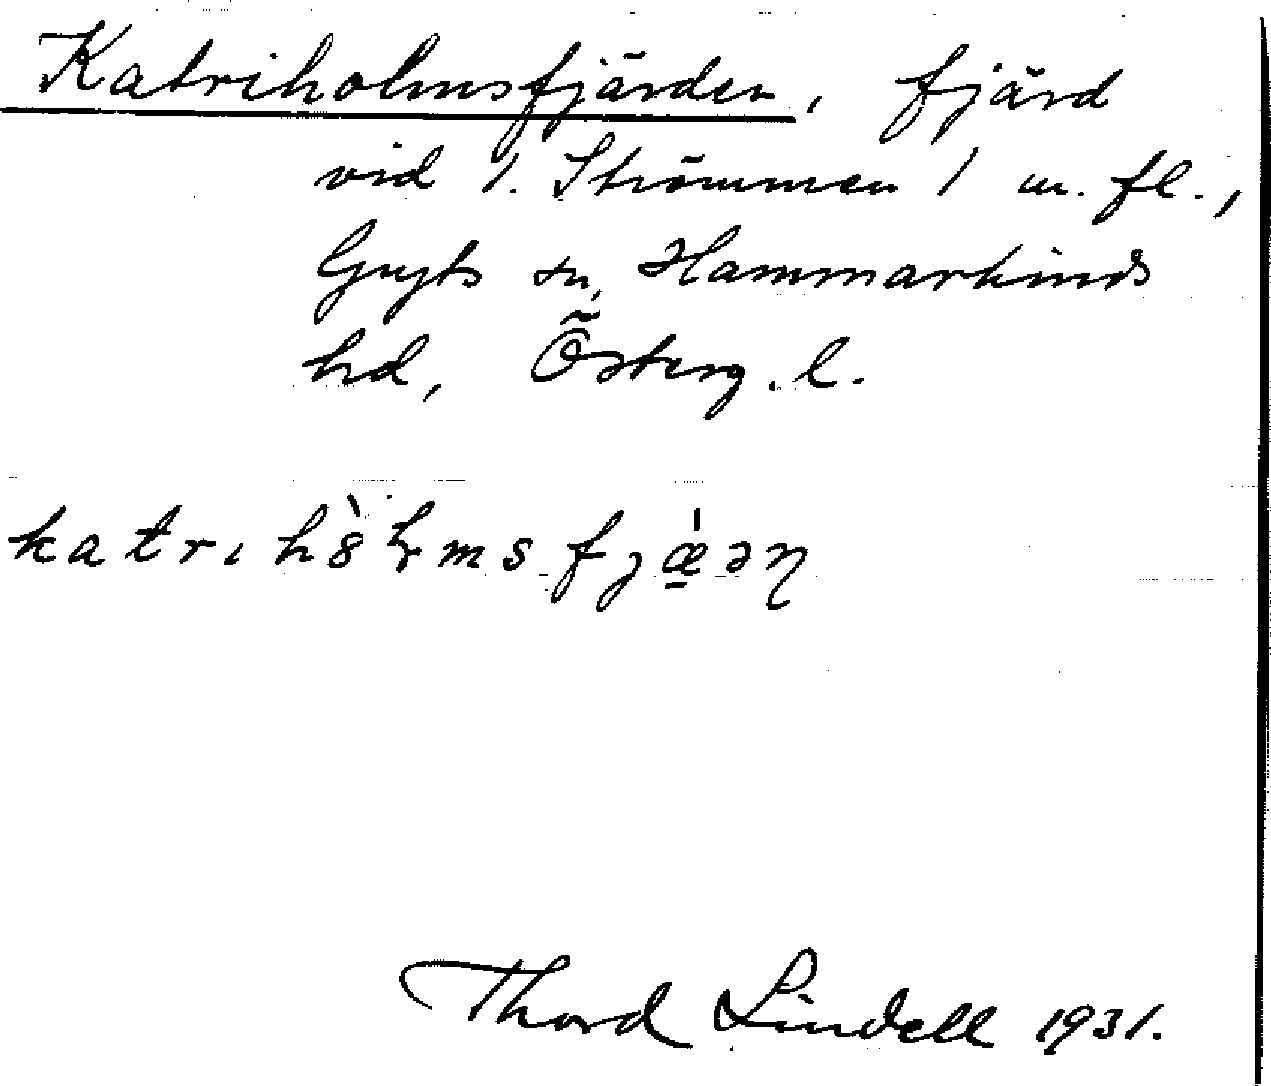 Katriholmsfjärden, fjärd
vid l. Strömmen l m. fl.,
Gryts sn, Hammarkinds
hd, Österg. l.
Thord Lindell 1931.